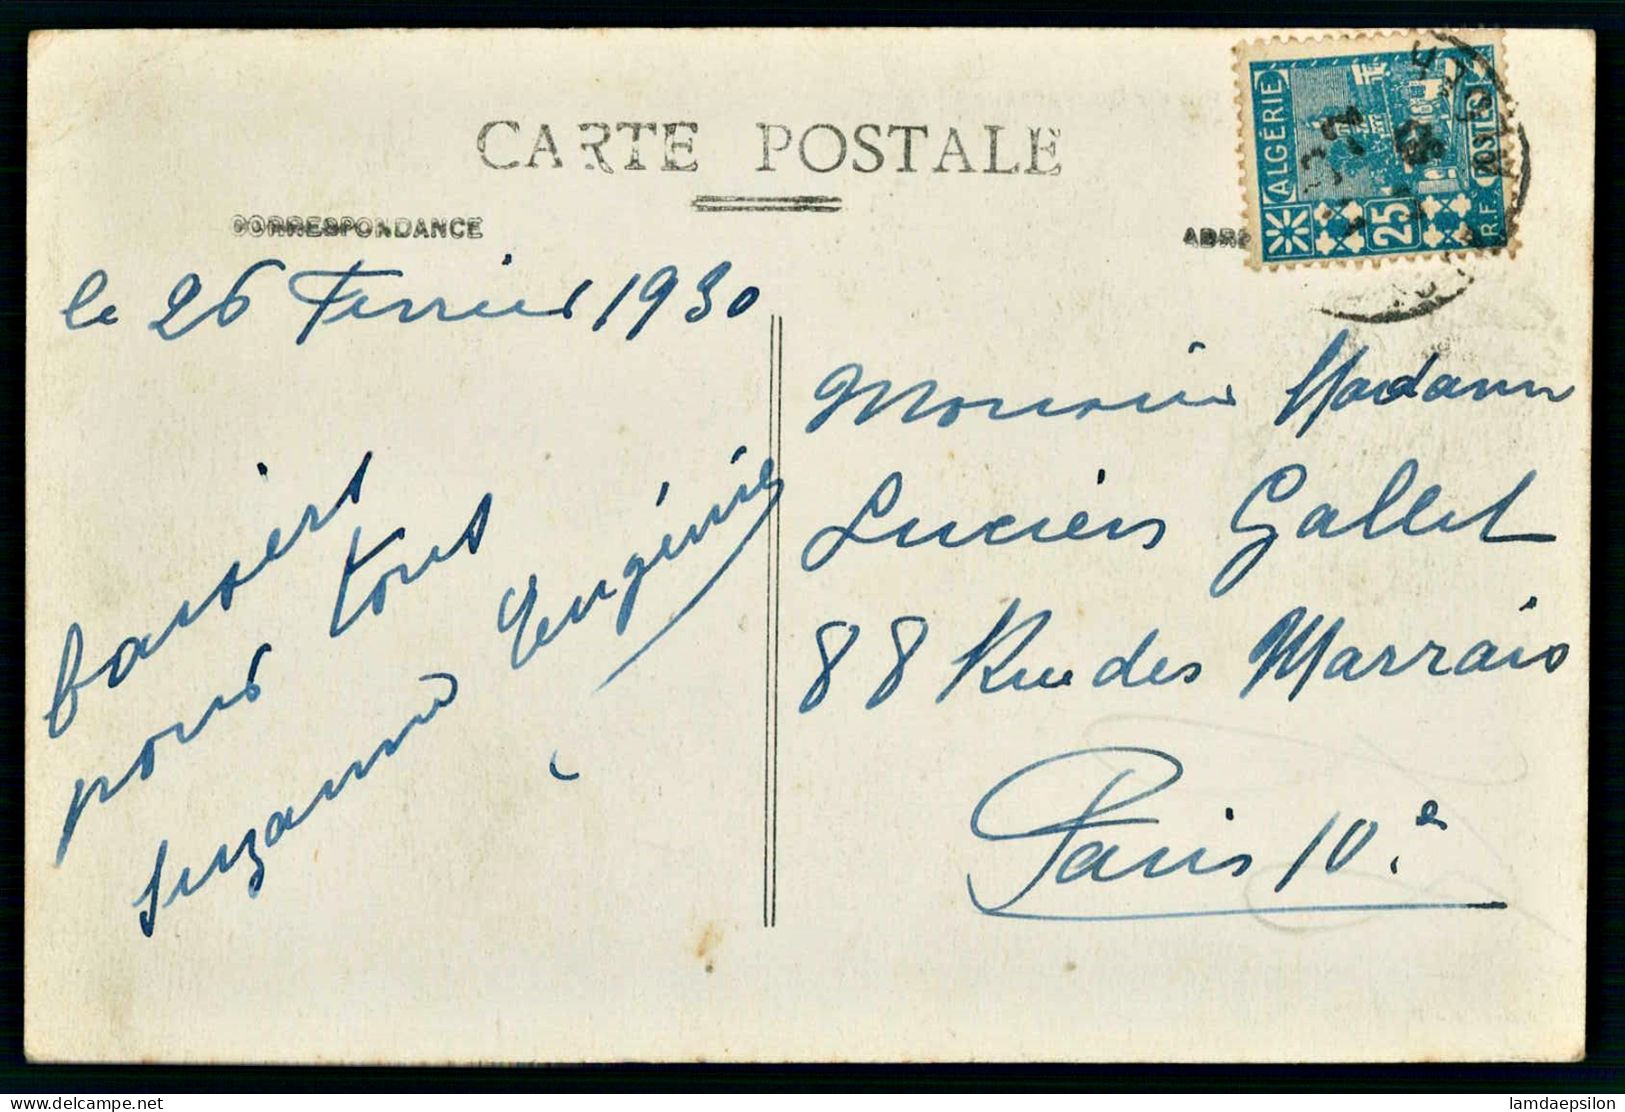 CARTE POSTALE
CORRESPONDANCE
ALGÉRIE
POSTES
25
R.F.
le 26 Fevrier 1930
baisers
pour tous
Suzanne Eugénie
Monsieur Madame
Lucien Gallet
88 Rue des Marrais
Paris 10.e
lamdaepsilon